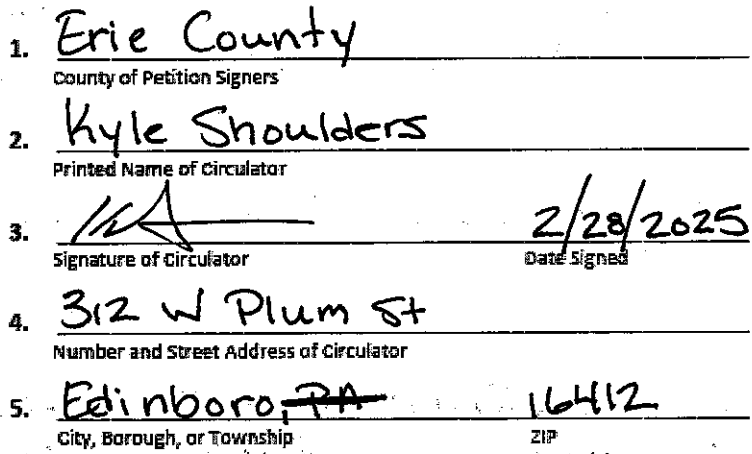 1. Erie County
County of Petition Signers
2. Kyle Shoulders
Printed Name of Circulator
3. 2/28/2025
Signature of Circulator Date Signed
4. 312 W Plum St
Number and Street Address of Circulator
5. Edinboro, PA 16412
City, Borough, or Township ZIP